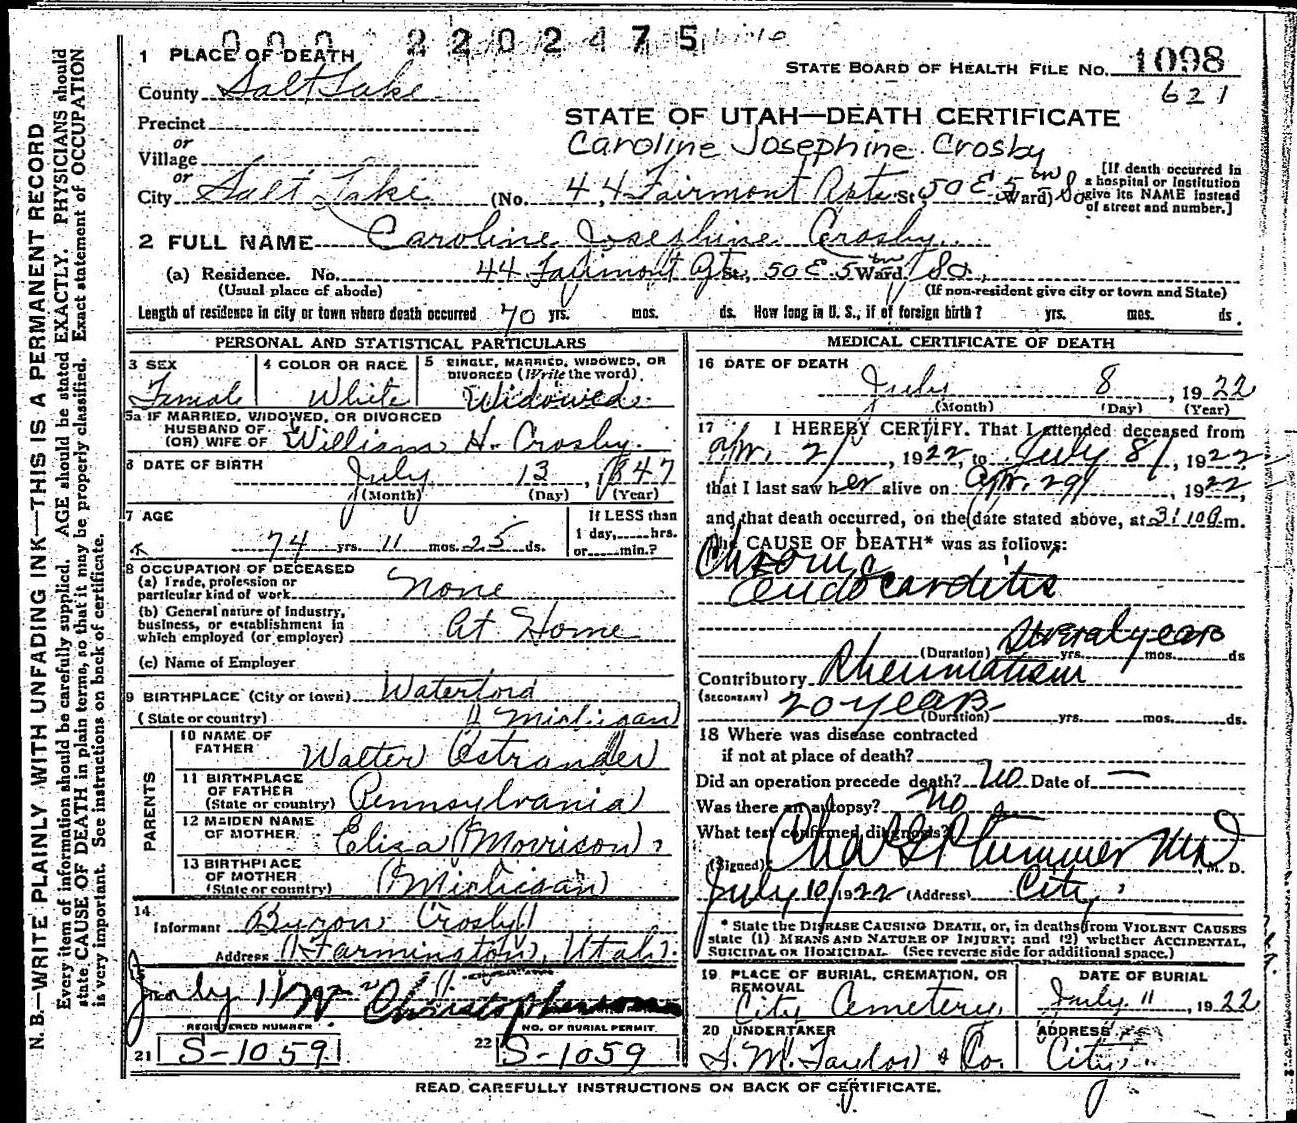 000 2202475
1 PLACE OF DEATH
STATE BOARD OF HEALTH FILE NO. 1098
County Salt Lake
621
Precinct
STATE OF UTAH—DEATH CERTIFICATE
or
Village
Caroline Josephine Crosby
or
City Salt Lake (No. 44 Fairmont Apts St. 50 E 5th Ward) So
[If death occurred in a hospital or institution give its NAME instead of street and number.]
2 FULL NAME Caroline Josephine Crosby
(a) Residence. No. 44 Fairmont Apt St., 50 E 5 Ward. So.
(Usual place of abode) (If non-resident give city or town and State)
Length of residence in city or town where death occurred 70 yrs. mos. ds. How long in U. S., if of foreign birth? yrs. mos. ds.
PERSONAL AND STATISTICAL PARTICULARS
3 SEX
Female
4 COLOR OR RACE
White
5 SINGLE, MARRIED, WIDOWED, OR DIVORCED (Write the word)
Widowed
5a IF MARRIED, WIDOWED, OR DIVORCED
HUSBAND OF
(OR) WIFE OF William H. Crosby.
6 DATE OF BIRTH
July 13, 1847
(Month) (Day) (Year)
7 AGE
74 yrs. 11 mos. 25 ds.
If LESS than
1 day,.....hrs.
or.....min.?
8 OCCUPATION OF DECEASED
(a) Trade, profession or
particular kind of work None
(b) General nature of Industry,
business, or establishment in
which employed (or employer) At Home
(c) Name of Employer
9 BIRTHPLACE (City or town) Waterford
(State or country) Michigan
PARENTS
10 NAME OF
FATHER Walter Ostrander
11 BIRTHPLACE
OF FATHER
(State or country) Pennsylvania
12 MAIDEN NAME
OF MOTHER Eliza Morrison
13 BIRTHPLACE
OF MOTHER
(State or country) Michigan
14
Informant Byron Crosby
Address Farmington, Utah.
July 11 Christopherson
REGISTERED NUMBER
21 S-1059
NO. OF BURIAL PERMIT
22 S-1059
MEDICAL CERTIFICATE OF DEATH
16 DATE OF DEATH
July 8, 1922
(Month) (Day) (Year)
17 I HEREBY CERTIFY, That I attended deceased from
Apr. 2, 1922, to July 8, 1922,
that I last saw her alive on Apr. 29, 1922,
and that death occurred, on the date stated above, at 3:10 a.m.
The CAUSE OF DEATH* was as follows:
Chronic
endocarditis
(Duration) Several years yrs. mos. ds
Contributory Rheumatism
(SECONDARY) 20 years
(Duration) yrs. mos. ds.
18 Where was disease contracted
if not at place of death?
Did an operation precede death? No Date of —
Was there an autopsy? No
What test confirmed diagnosis?
(Signed) Chas G Plummer MD, M. D.
July 10, 1922 (Address) City
* State the DISEASE CAUSING DEATH, or, in deaths from VIOLENT CAUSES
state (1) MEANS AND NATURE OF INJURY; and (2) whether ACCIDENTAL,
SUICIDAL OR HOMICIDAL (See reverse side for additional space.)
19 PLACE OF BURIAL, CREMATION, OR
REMOVAL
City Cemetery,
DATE OF BURIAL
July 11, 1922
20 UNDERTAKER
S. M. Taylor & Co.
ADDRESS
City
READ CAREFULLY INSTRUCTIONS ON BACK OF CERTIFICATE.
N. B.—WRITE PLAINLY WITH UNFADING INK—THIS IS A PERMANENT RECORD
Every item of information should be carefully supplied. AGE should be stated EXACTLY. PHYSICIANS should
state CAUSE OF DEATH in plain terms, so that it may be properly classified. Exact statement of OCCUPATION
is very important. See instructions on back of certificate.